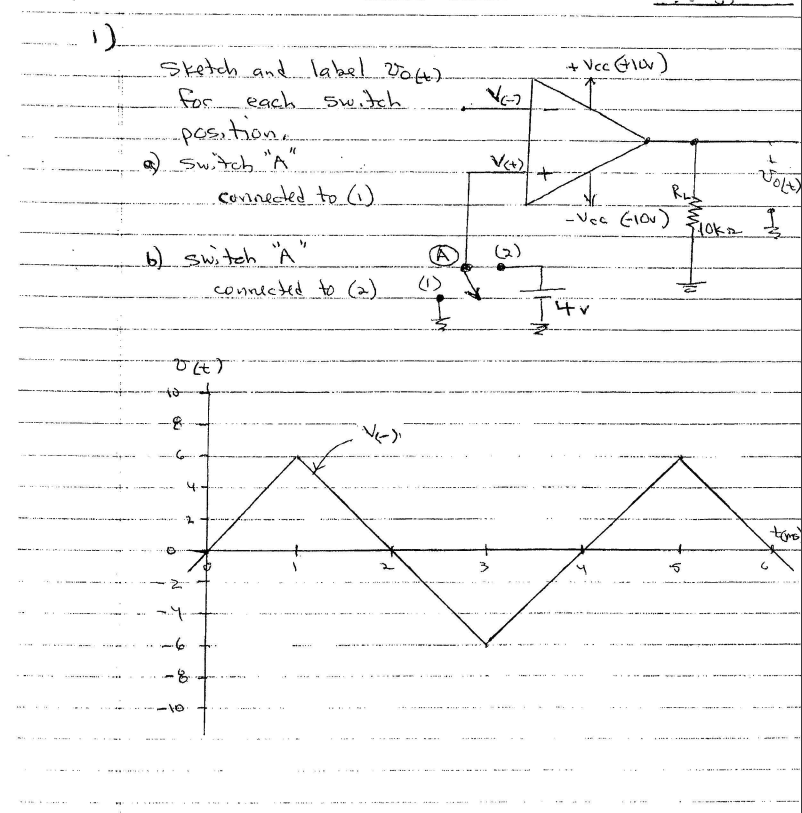 1)
Sketch and label v₀(t)
for each switch
position.
a) switch "A"
connected to (1)
b) switch "A"
connected to (2)
+Vcc (+10V)
V(-)
−
V(+)
+
-Vcc (-10V)
RL
10kΩ
v₀(t)
A
(2)
(1)
4v
v(t)
10
8
6
4
2
0
-2
-4
-6
-8
-10
V(-)
0 1 2 3 4 5 6
t(ms)